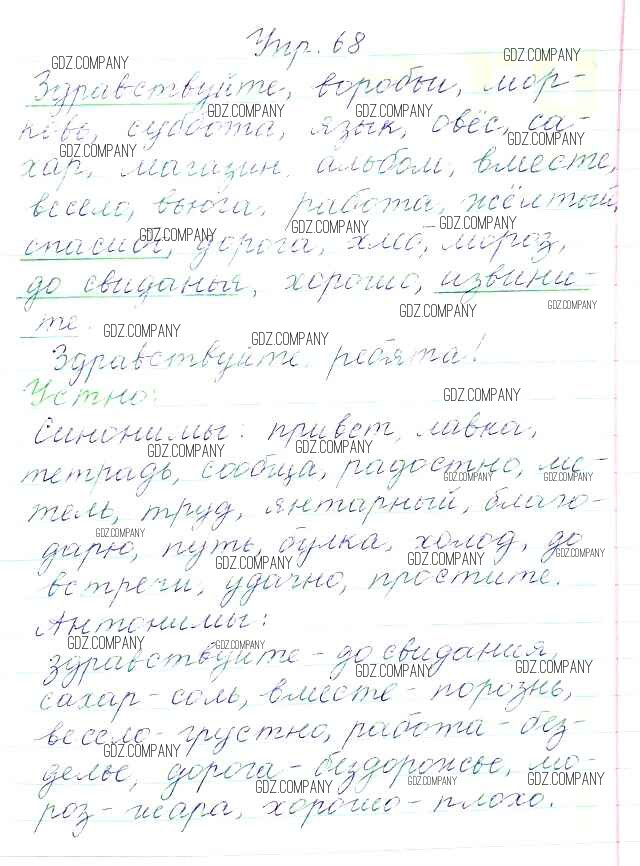 Упр. 68
Здравствуйте, воробьи, мор-
ковь, суббота, язык, овёс, са-
хар, магазин, альбом, вместе,
весело, вьюга, работа, жёлтый,
спасибо, дорога, хлеб, мороз,
до свиданья, хорошо, извини-
те.
Здравствуйте, ребята!
Устно:
Синонимы: привет, лавка,
тетрадь, сообща, радостно, ме-
тель, труд, янтарный, благо-
дарю, путь, булка, холод, до
встречи, удачно, простите.
Антонимы:
здравствуйте - до свидания,
сахар - соль, вместе - порознь,
весело - грустно, работа - без-
делье, дорога - бездорожье, мо-
роз - жара, хорошо - плохо.
GDZ.COMPANY